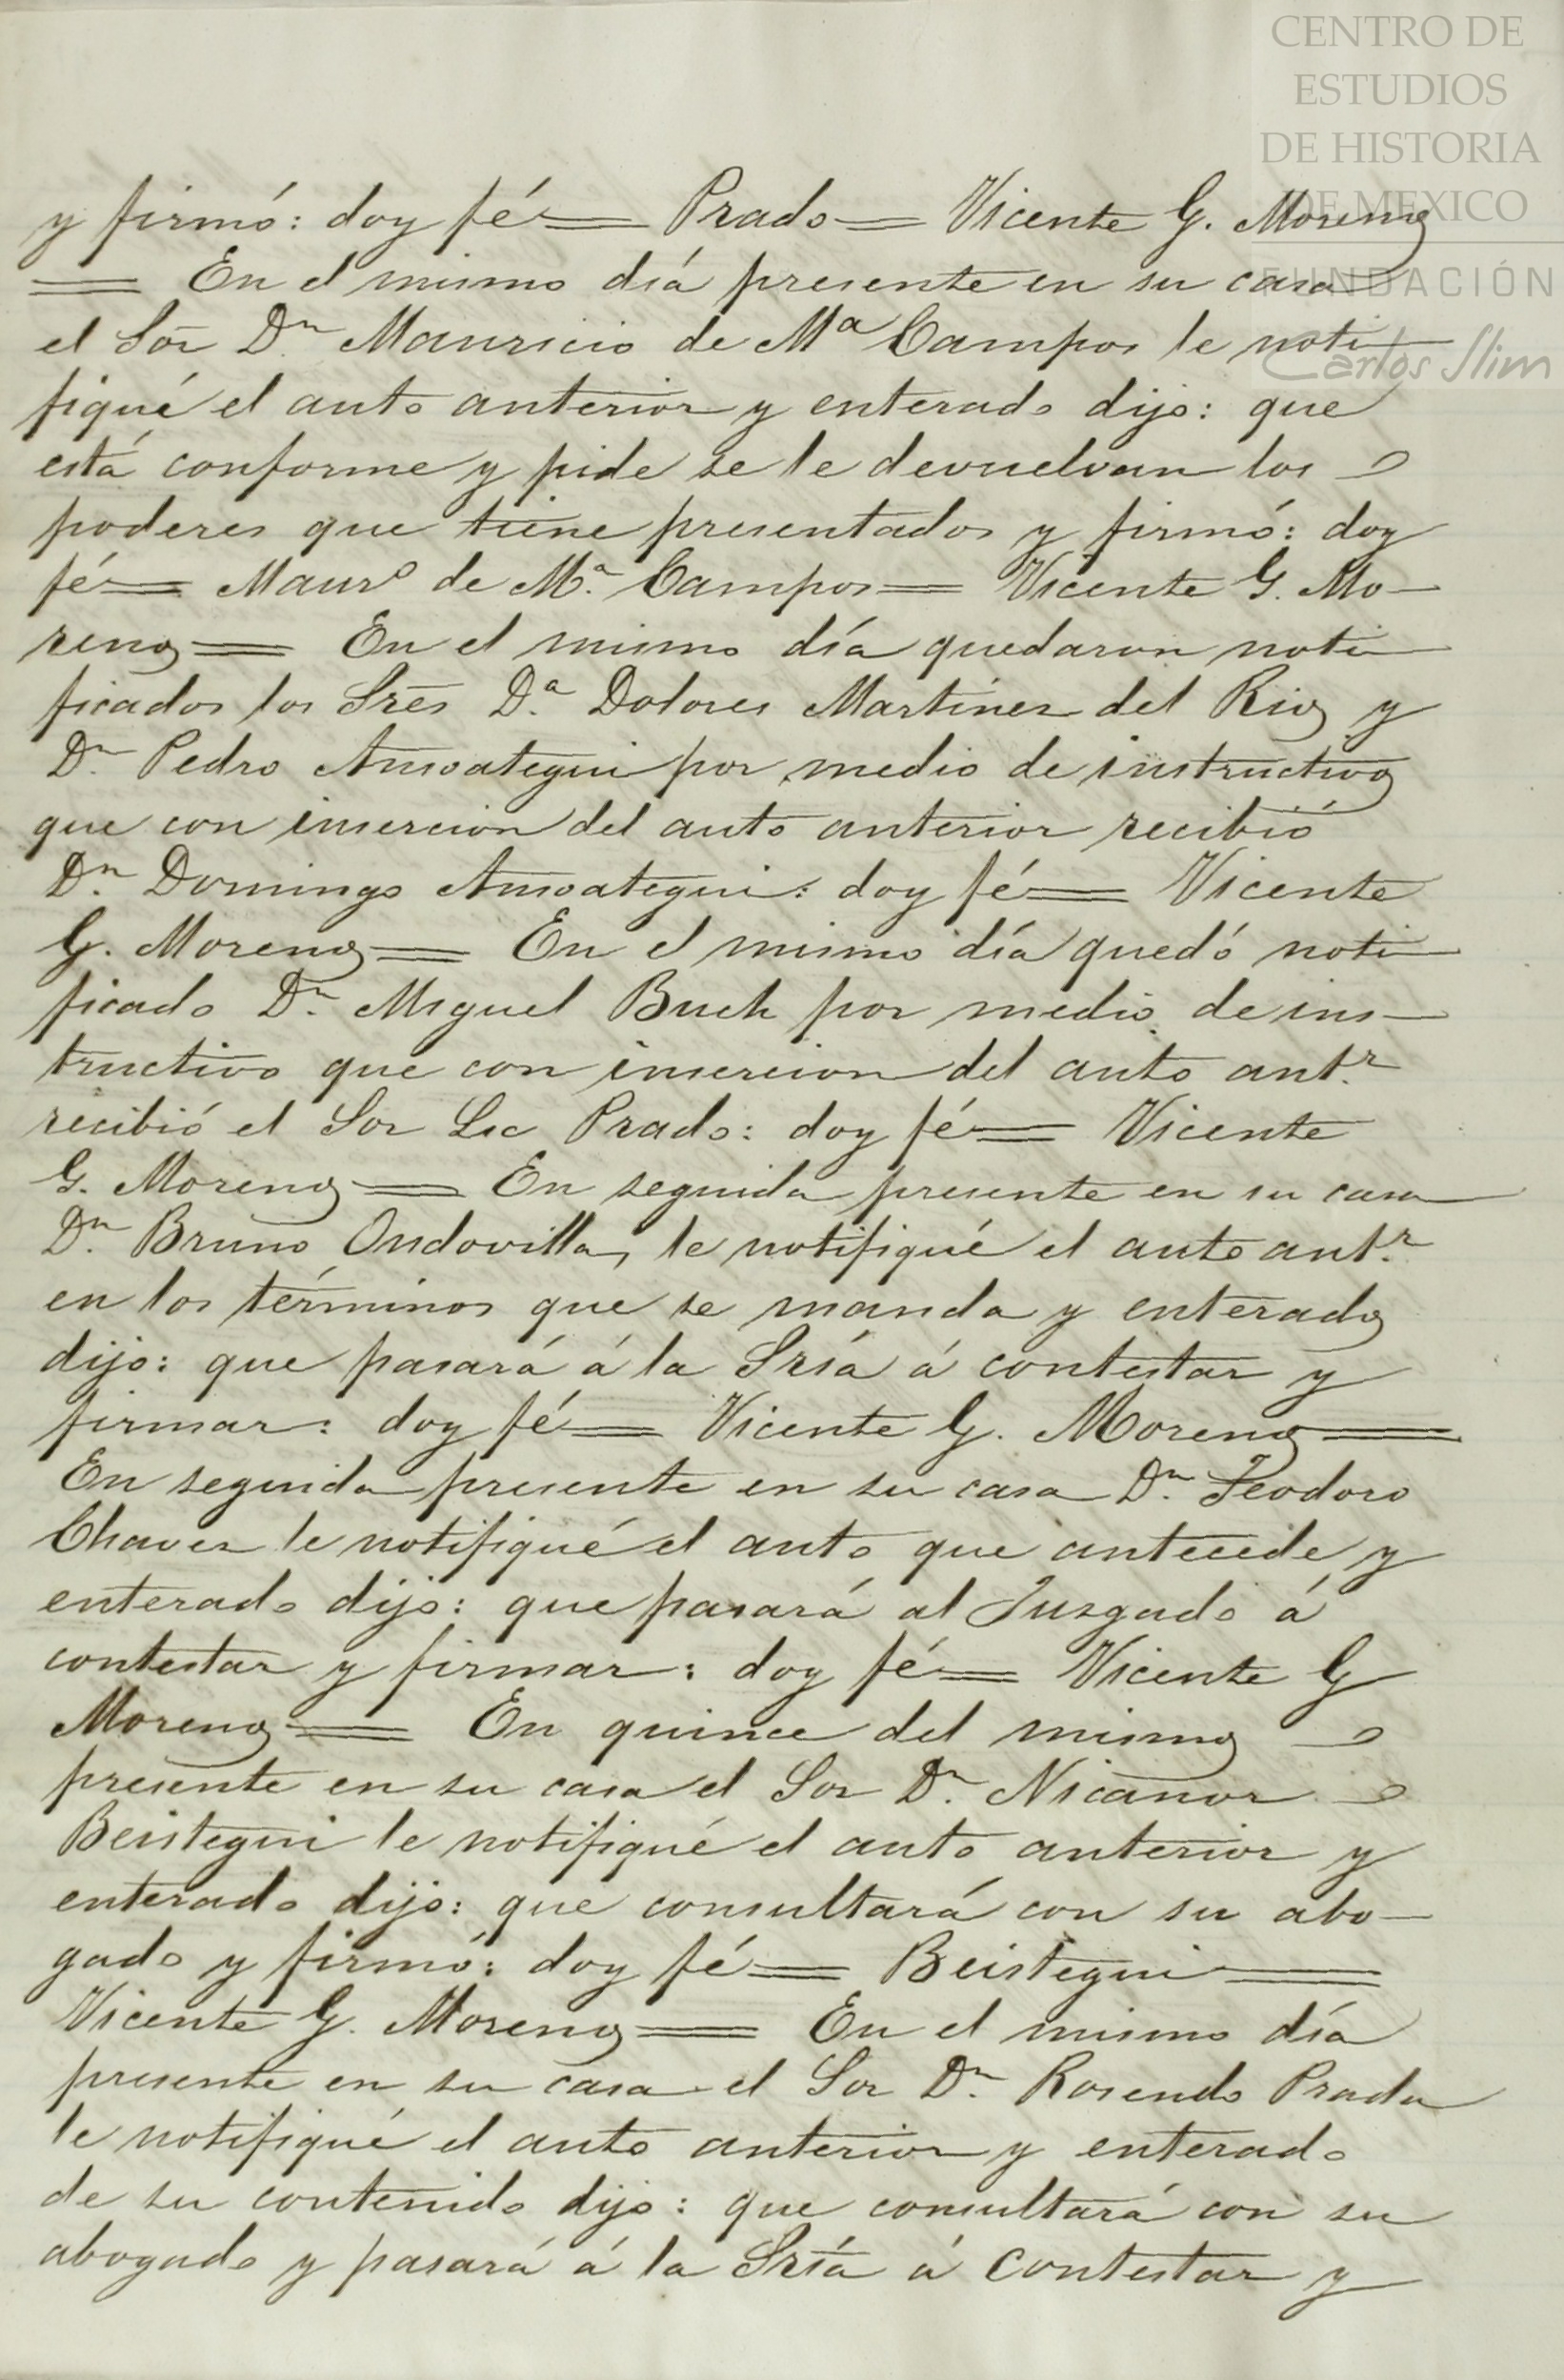 CENTRO DE
ESTUDIOS
DE HISTORIA
DE MEXICO
FUNDACIÓN
Carlos Slim
y firmó: doy fé= Prado= Vicente G. Moreno
= En el mismo día presente en su casa
el Sōr Dⁿ Mauricio de Mª Campos le noti
fiqué el auto anterior y enterado dijo: que
está conforme y pide se le devuelvan los
poderes que tiene presentados y firmó: doy
fé= Maurº de Mª Campos= Vicente G. Mo-
reno= En el mismo día quedaron noti
ficados los Srēs Dª Dolores Martinez del Rio y
Dⁿ Pedro Ansoategui por medio de instructivo
que con insercion del auto anterior recibió
Dⁿ Domingo Ansoategui: doy fé= Vicente
G. Moreno= En el mismo día quedó noti
ficado Dⁿ Miguel Buch por medio de ins-
tructivo que con insercion del auto antʳ
recibió el Sor Lic Prado: doy fé= Vicente
G. Moreno= En seguida presente en su casa
Dⁿ Bruno Ondovilla, le notifiqué el auto antʳ
en los términos que se manda y enterado
dijo: que pasará á la Sría á contestar y
firmar: doy fé= Vicente G. Moreno=
En seguida presente en su casa Dⁿ Teodoro
Chavez le notifiqué el auto que antecede y
enterado dijo: que pasará al Juzgado á
contestar y firmar: doy fé= Vicente G
Moreno= En quince del mismo
presente en su casa el Sor Dⁿ Nicanor
Beistegui le notifiqué el auto anterior y
enterado dijo: que consultará con su abo-
gado y firmó: doy fé= Beistegui=
Vicente G. Moreno= En el mismo día
presente en su casa el Sor Dⁿ Rosendo Prado
le notifiqué el auto anterior y enterado
de su contenido dijo: que consultará con su
abogado y pasará á la Sría á contestar y